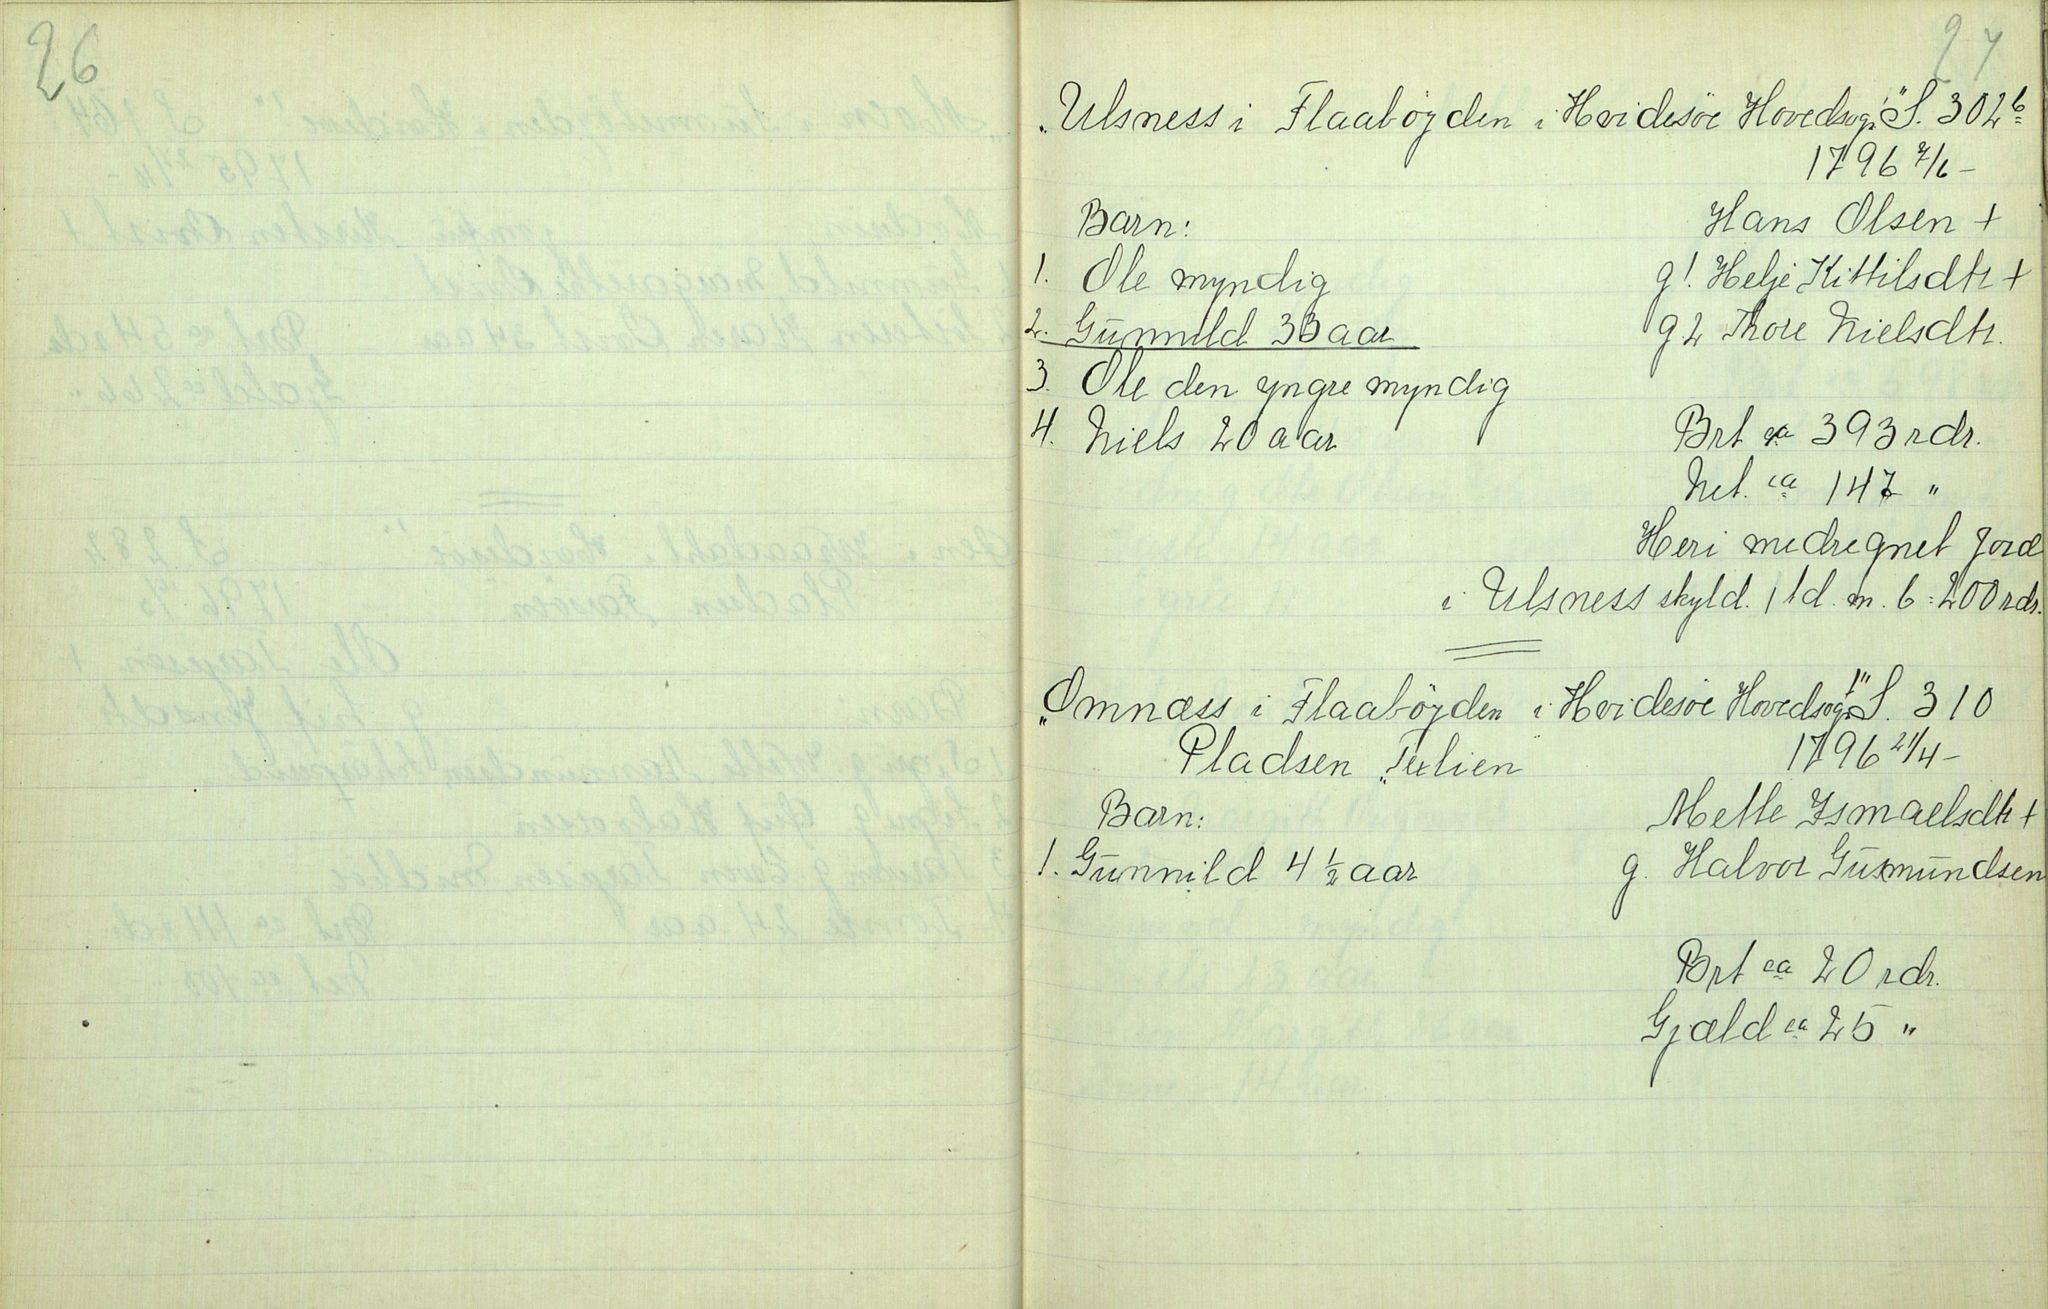 26
27
„Ulsness i Flaabøjden i Hvidesøe Hovedsogn" S. 302b
1796 7/6 –
Barn: Hans Olsen +
1. Ole myndig g 1. Helje Kittilsdtr +
2. Gunnild 33 aar g 2 Thore Nielsdtr.
3. Ole den yngre myndig
4. Niels 20 aar Brt ca 393 rdr.
Net. ca 147 "
Heri medregnet Jord
i Ulsness skyld. 1 td. m. 6 = 200 rdr.
„Omnæss i Flaabøjden i Hvidesøe Hovedsogn" S. 310
Pladsen „ 1796 21/4 –
Barn: Mette Ismaelsdtr +
1. Gunnild 4 1/2 aar g. Halvor Gusmundsen
Brt ca 20 rdr.
Gjæld ca 25 "